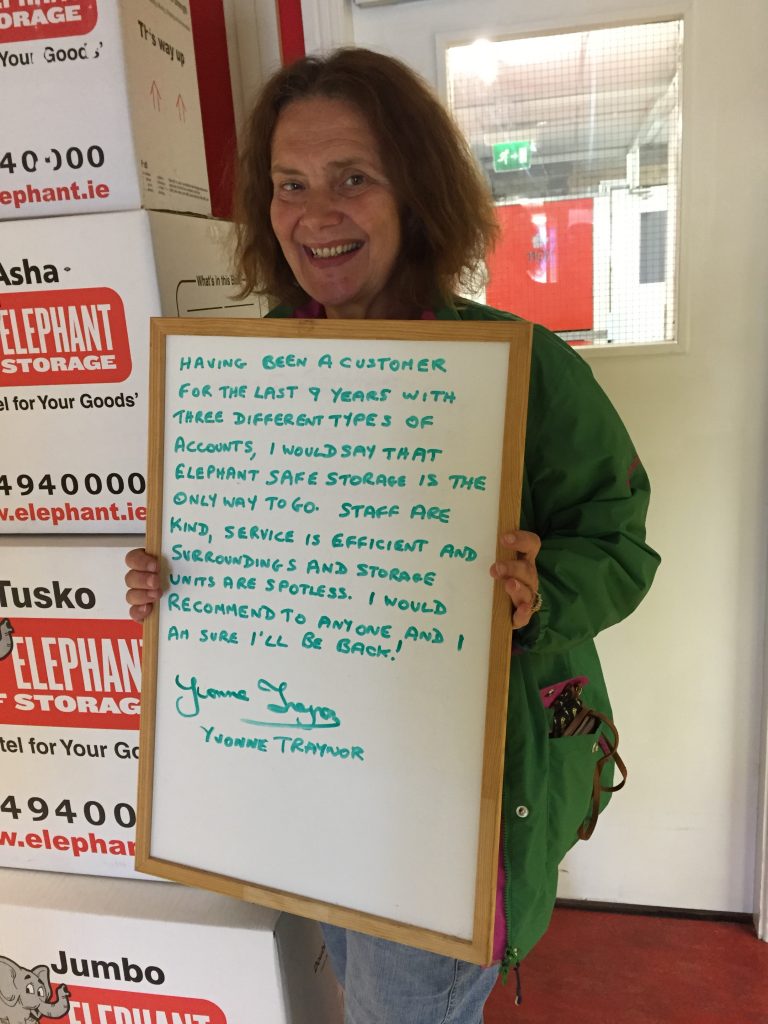 ORAGE
Your Goods
40-000
ephant.ie
This way up
Asha
ELEPHANT
STORAGE
el for Your Goods'
4940000
w.elephant.ie
What's in this Box
Tusko
ELEPHAN
F STORAG
tel for Your Go
49400
w.elephan
Jumbo
ELEPHANT
HAVING BEEN A CUSTOMER
FOR THE LAST 9 YEARS WITH
THREE DIFFERENT TYPES OF
ACCOUNTS, I WOULD SAY THAT
ELEPHANT SAFE STORAGE IS THE
ONLY WAY TO GO. STAFF ARE
KIND, SERVICE IS EFFICIENT AND
SURROUNDINGS AND STORAGE
UNITS ARE SPOTLESS. I WOULD
RECOMMEND TO ANYONE AND I
AM SURE I'LL BE BACK!
Yvonne Traynor
YVONNE TRAYNOR